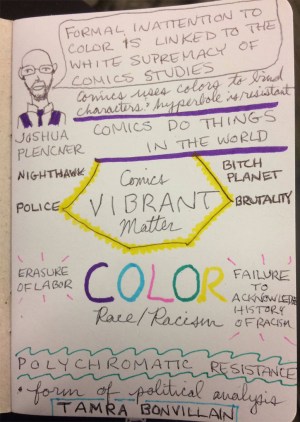 FORMAL INATTENTION TO
COLOR IS LINKED TO THE
WHITE SUPREMACY OF
COMICS STUDIES
Comics uses colors to bind
characters; hyperbole is resistant
JOSHUA
PLENCNER
COMICS DO THINGS
IN THE WORLD
NIGHTHAWK
POLICE
Comics
VIBRANT
Matter
BITCH
PLANET
BRUTALITY
ERASURE
OF LABOR
COLOR
Race/Racism
FAILURE
TO
ACKNOWLEDGE
HISTORY
OF RACISM
POLYCHROMATIC RESISTANCE
• form of political analysis
TAMRA BONVILLAIN